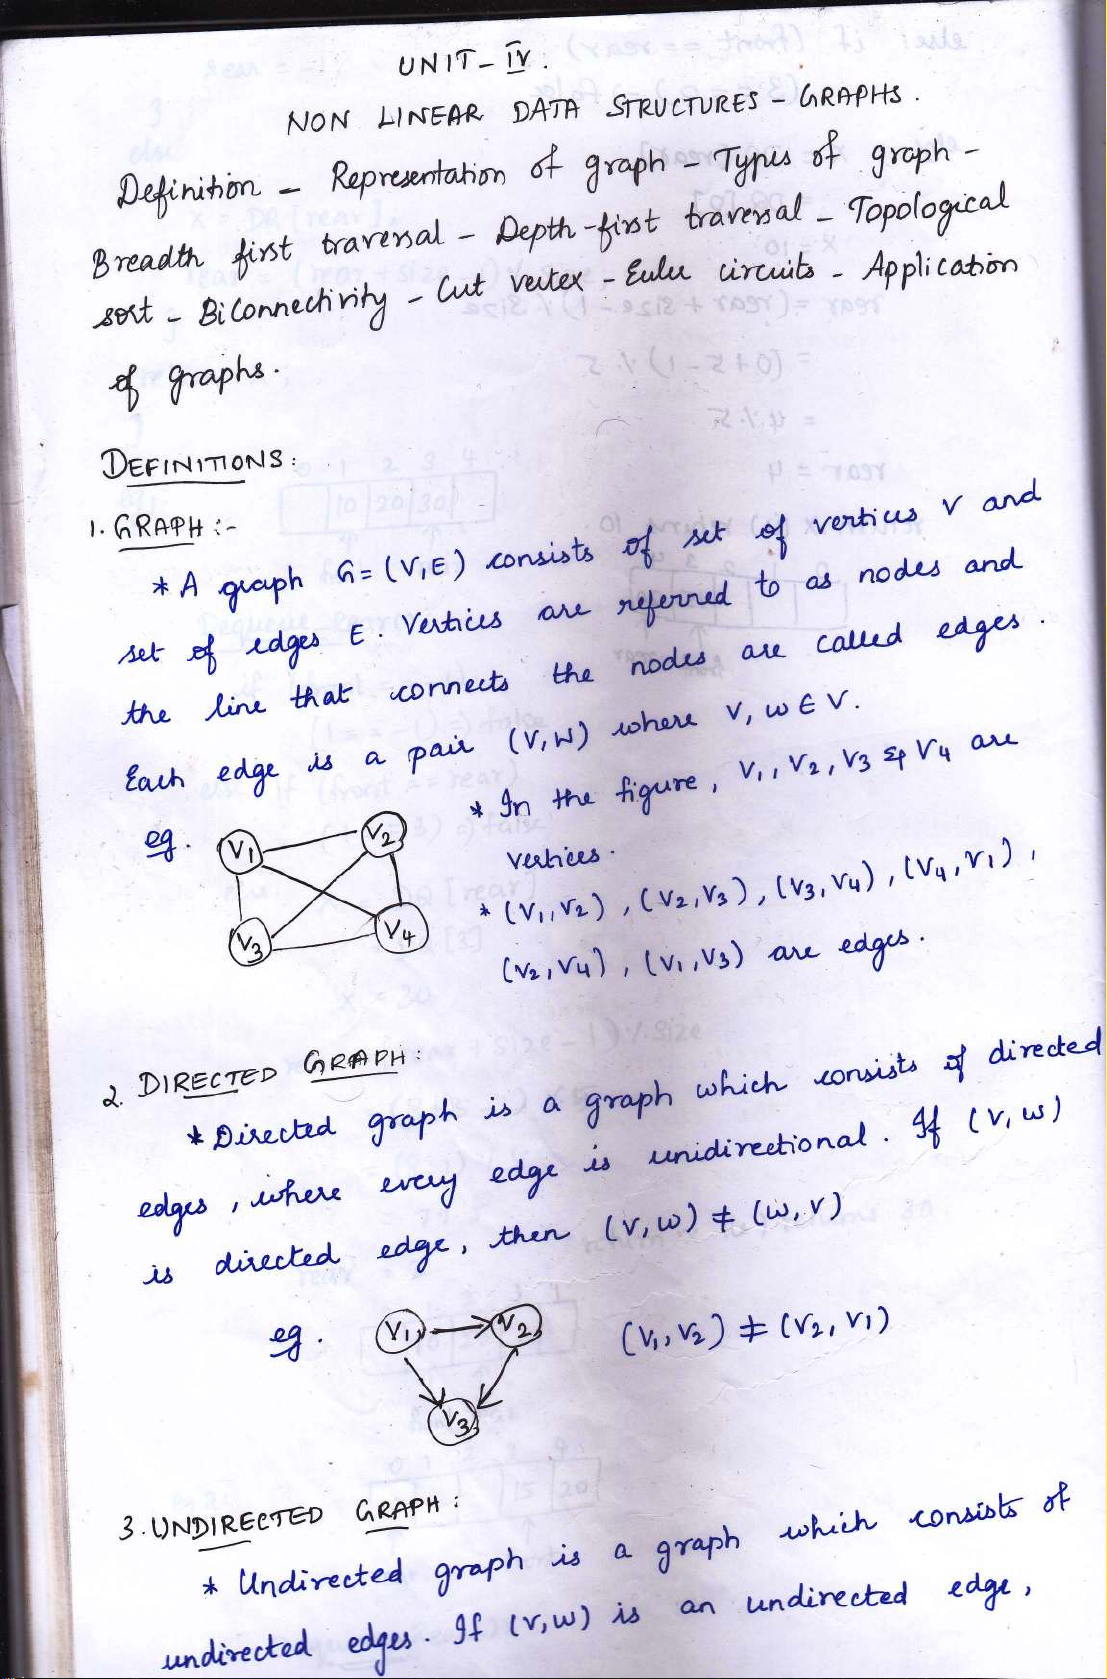 UNIT - IV.
NON LINEAR DATA STRUCTURES - GRAPHS.
Definition - Representation of graph - Types of graph -
Breadth first traversal - Depth-first traversal - Topological
sort - BiConnectivity - Cut vertex - Euler circuits - Application
of graphs.
DEFINITIONS:
1. GRAPH :-
* A graph G = (V,E) consists of set of vertices V and
set of edges E. Vertices are referred to as nodes and
the line that connects the nodes are called edges.
Each edge is a pair (V,W) where V, W ∈ V.
eg.
V1
V2
V3
V4
* In the figure, V1, V2, V3 & V4 are
vertices.
* (V1,V2), (V2,V3), (V3,V4), (V4,V1),
(V2,V4), (V1,V3) are edges.
2. DIRECTED GRAPH:
* Directed graph is a graph which consists of directed
edges, where every edge is unidirectional. If (V,W)
is directed edge, then (V,W) ≠ (W,V)
eg.
V1
V2
V3
(V1,V2) ≠ (V2,V1)
3. UNDIRECTED GRAPH:
* Undirected graph is a graph which consists of
undirected edges. If (V,W) is an undirected edge,